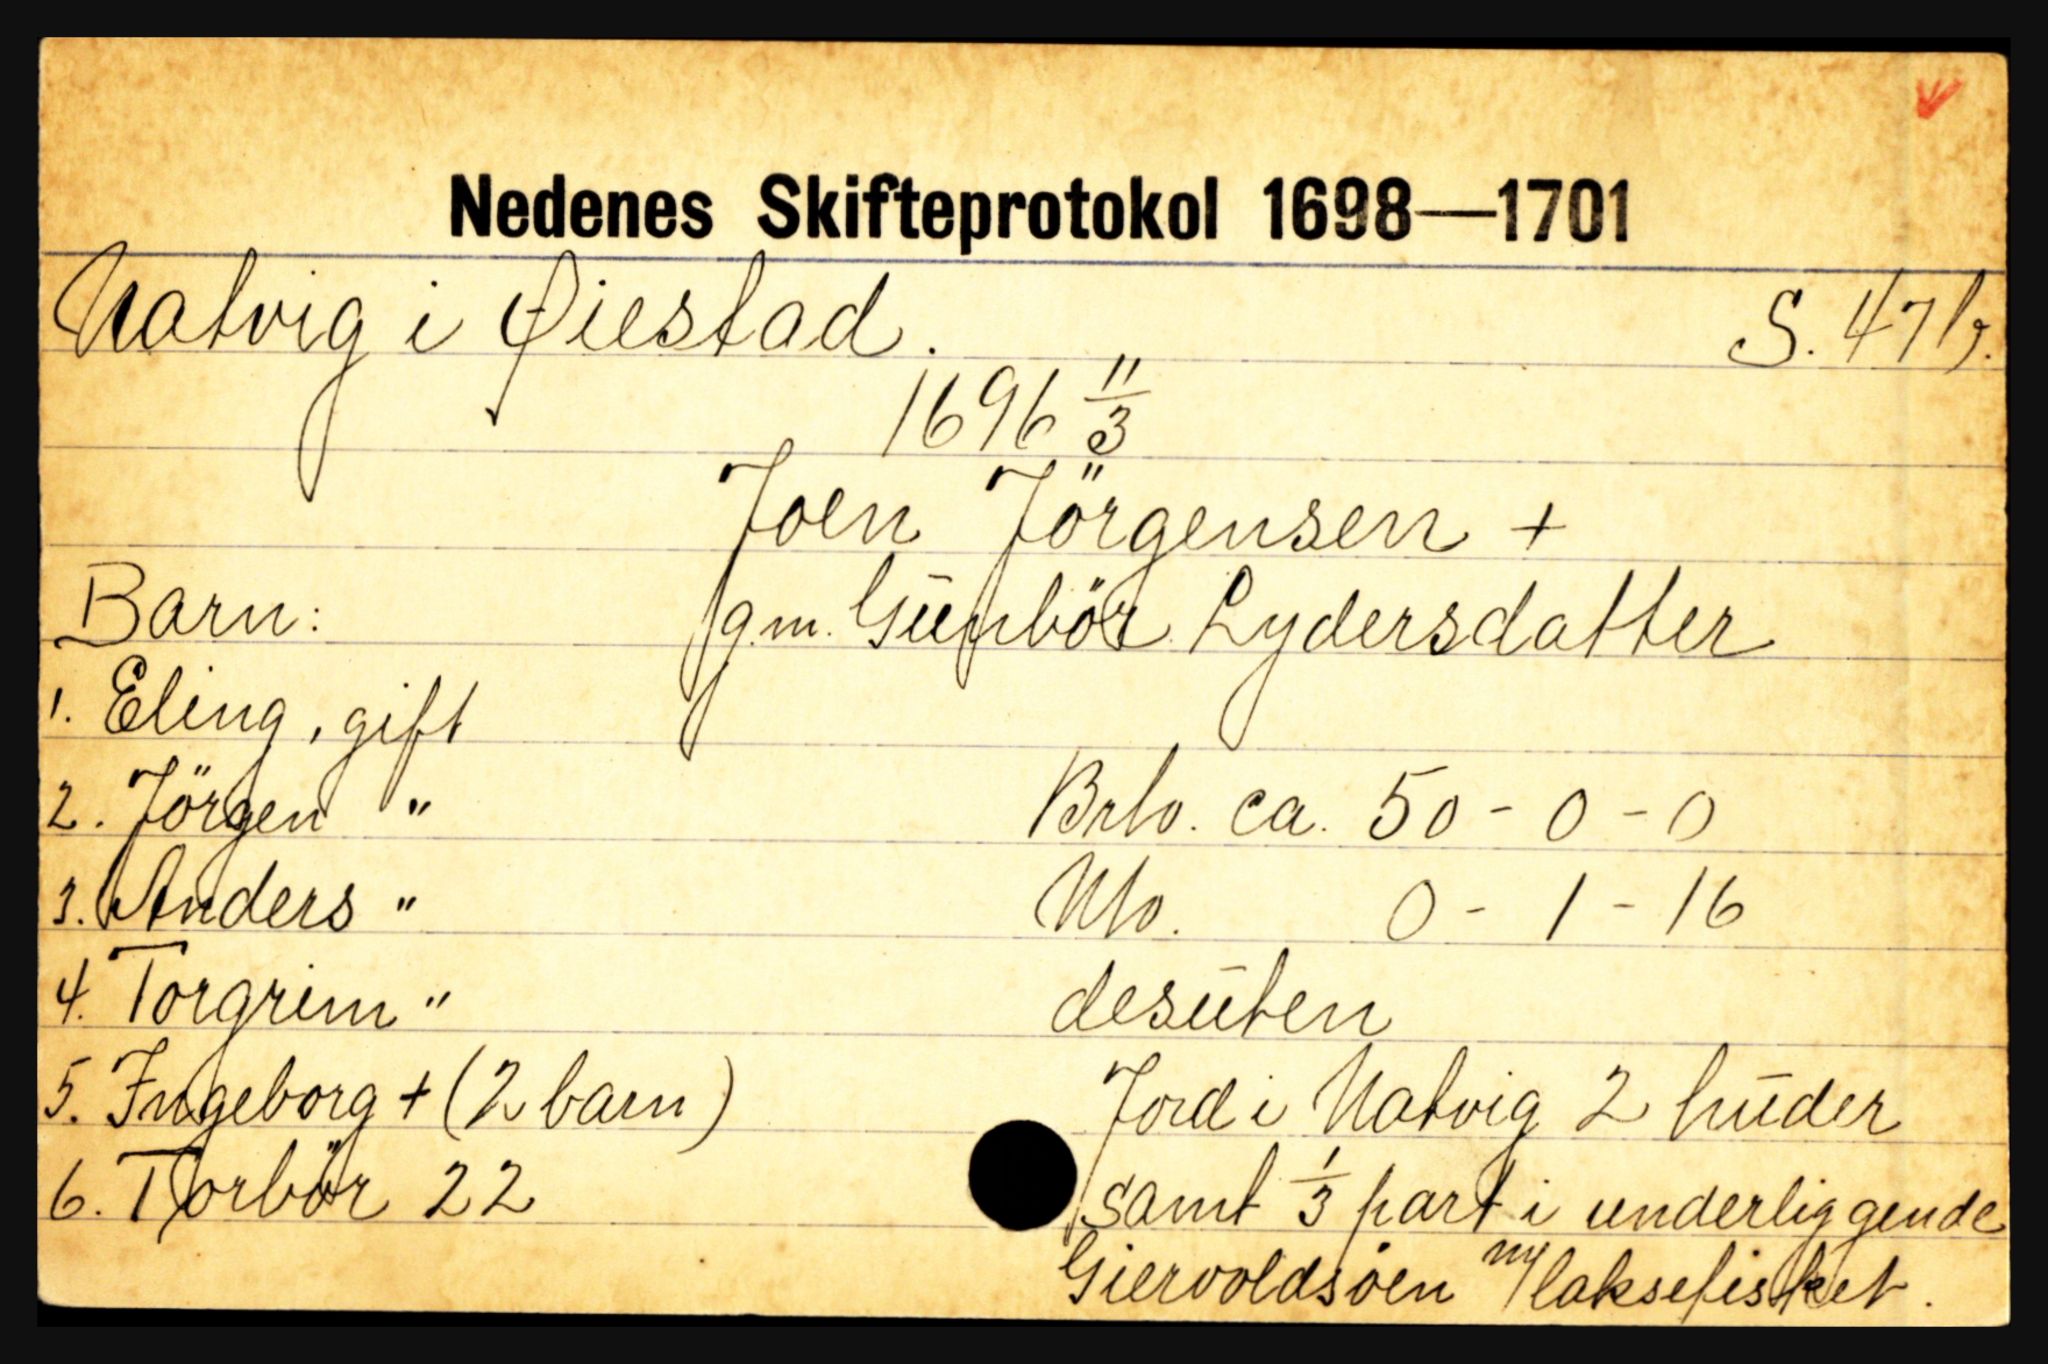 Nedenes Skifteprotokol 1698—1701
Natvig i Øiestad. S. 47 b.
1696 11/3
Joen Jörgensen +
Barn: g.m. Gūnbör Lydersdatter
1. Eling, gift
2. Jörgen " Brto. ca. 50 - 0 - 0
3. Anders " Nto. 0 - 1 - 16
4. Torgrim " desūten
5. Ingeborg + (2 barn) Jord i Natvig 2 hūder
6. Torbör 22 samt 1/3 part i underliggende
Giervoldsöen m/ laksefisket.